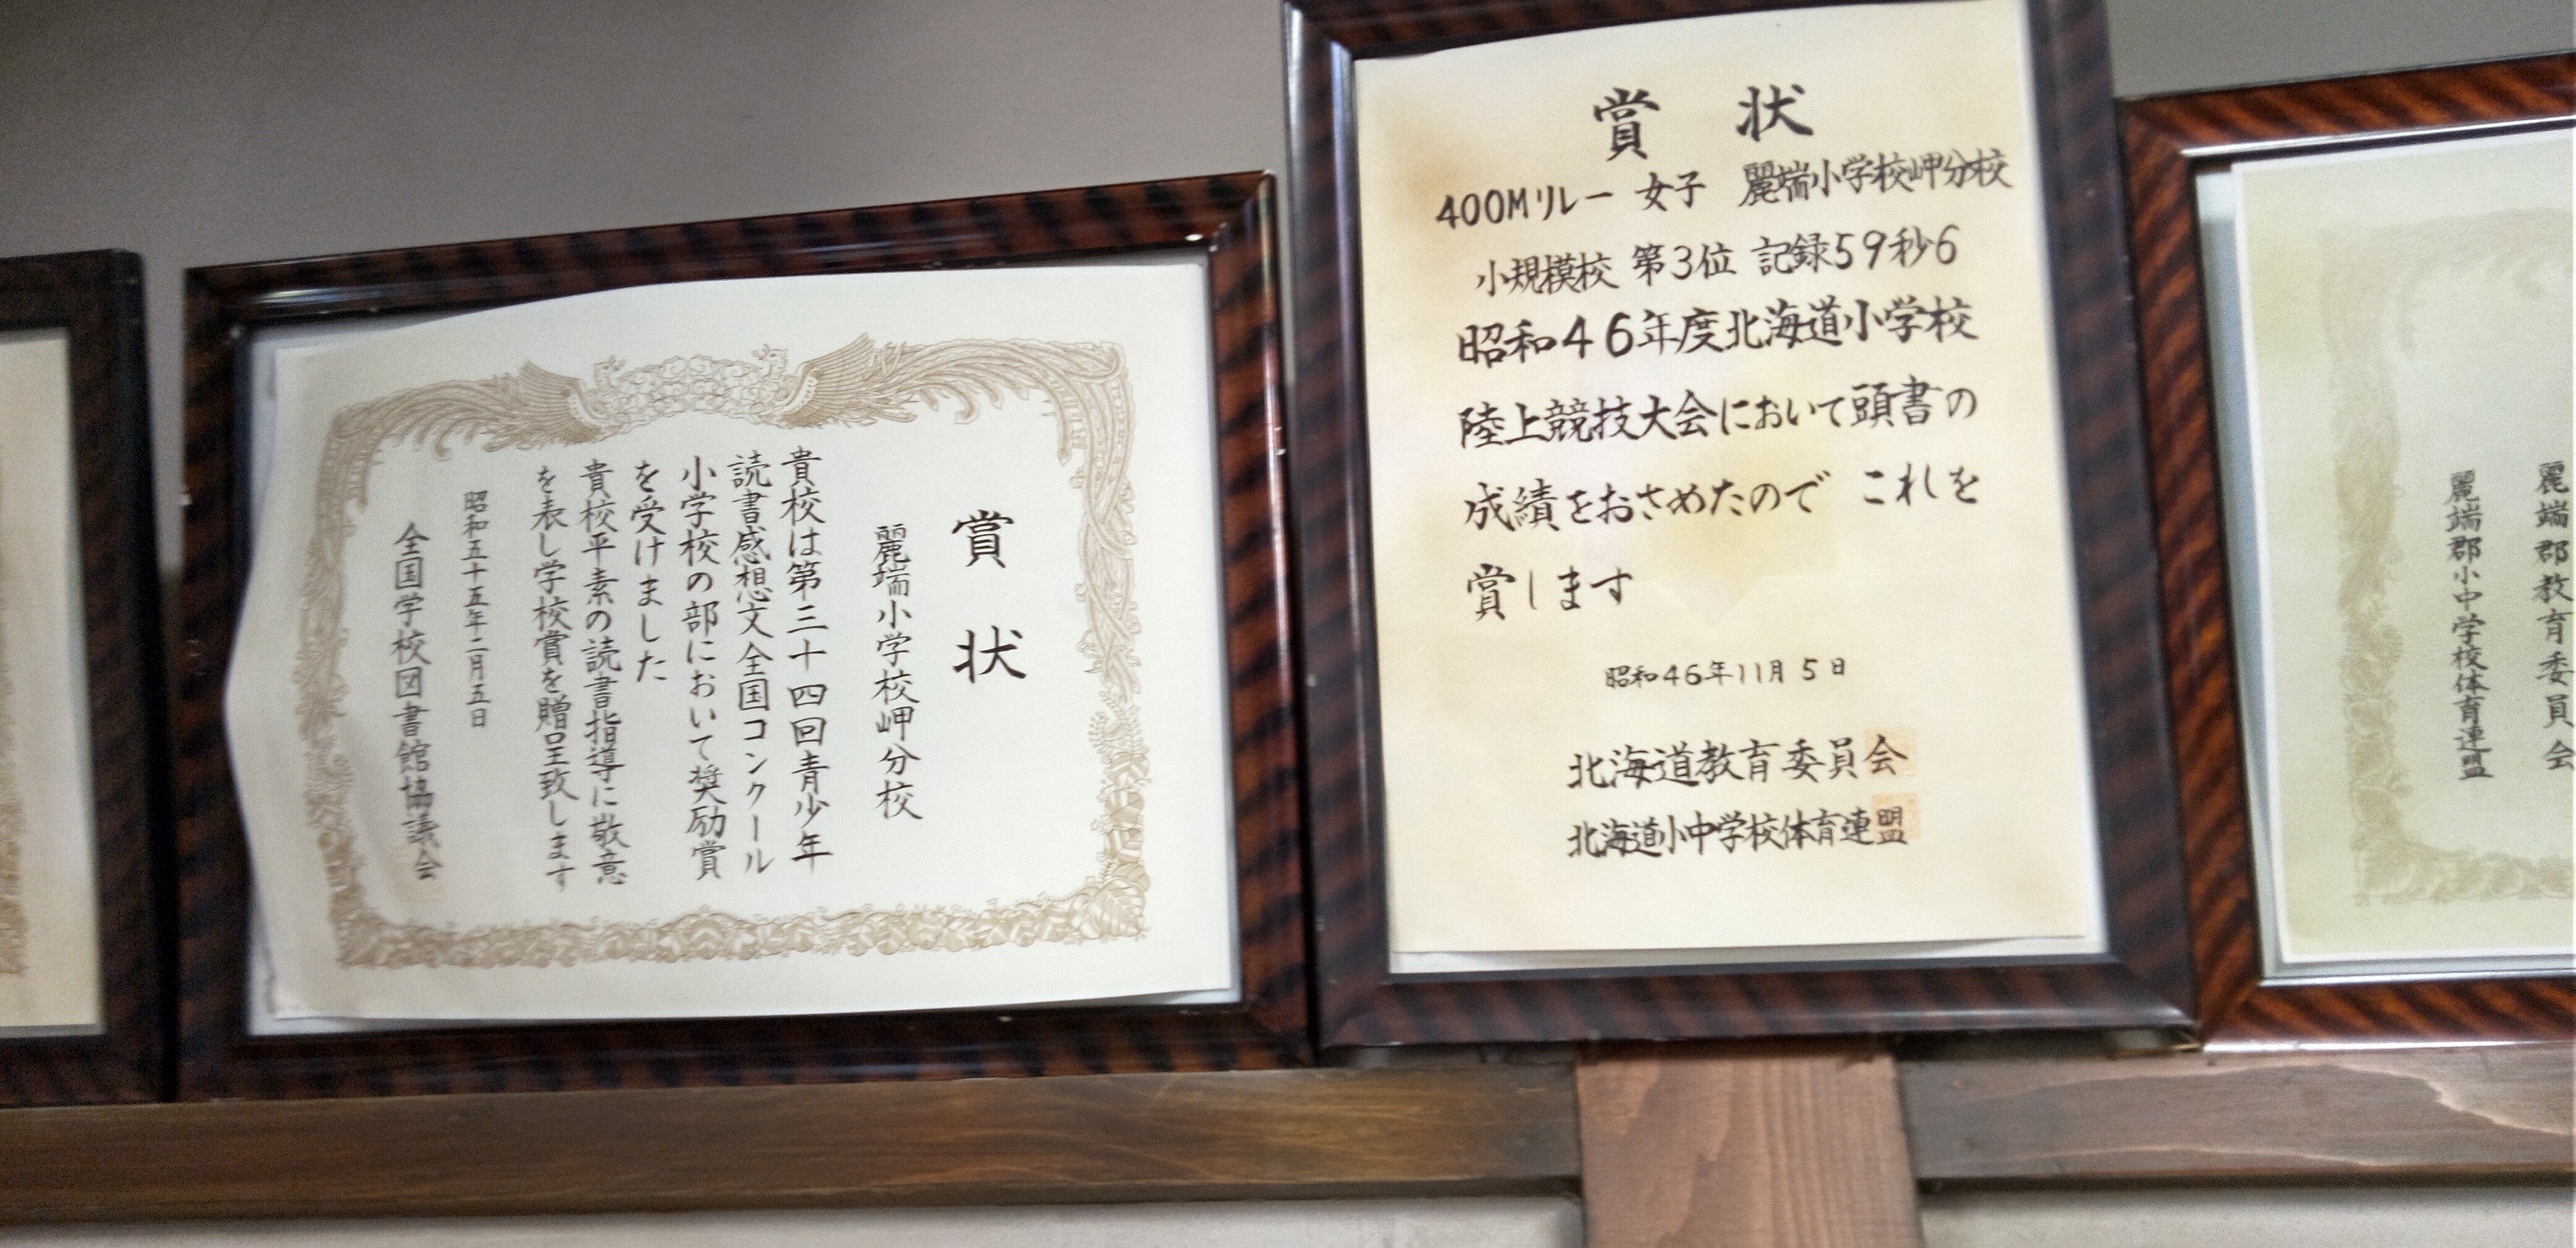 賞状
麗端小学校岬分校
貴校は第三十四回青少年
読書感想文全国コンクール
小学校の部において奨励賞
を受けました
貴校平素の読書指導に敬意
を表し学校賞を贈呈致します
昭和五十五年二月五日
全国学校図書館協議会
賞状
400Mリレー 女子 麗端小学校岬分校
小規模校 第3位 記録59秒6
昭和46年度北海道小学校
陸上競技大会において頭書の
成績をおさめたので これを
賞します
昭和46年11月5日
北海道教育委員会
北海道小中学校体育連盟
麗端郡教育委員会
麗端郡小中学校体育連盟